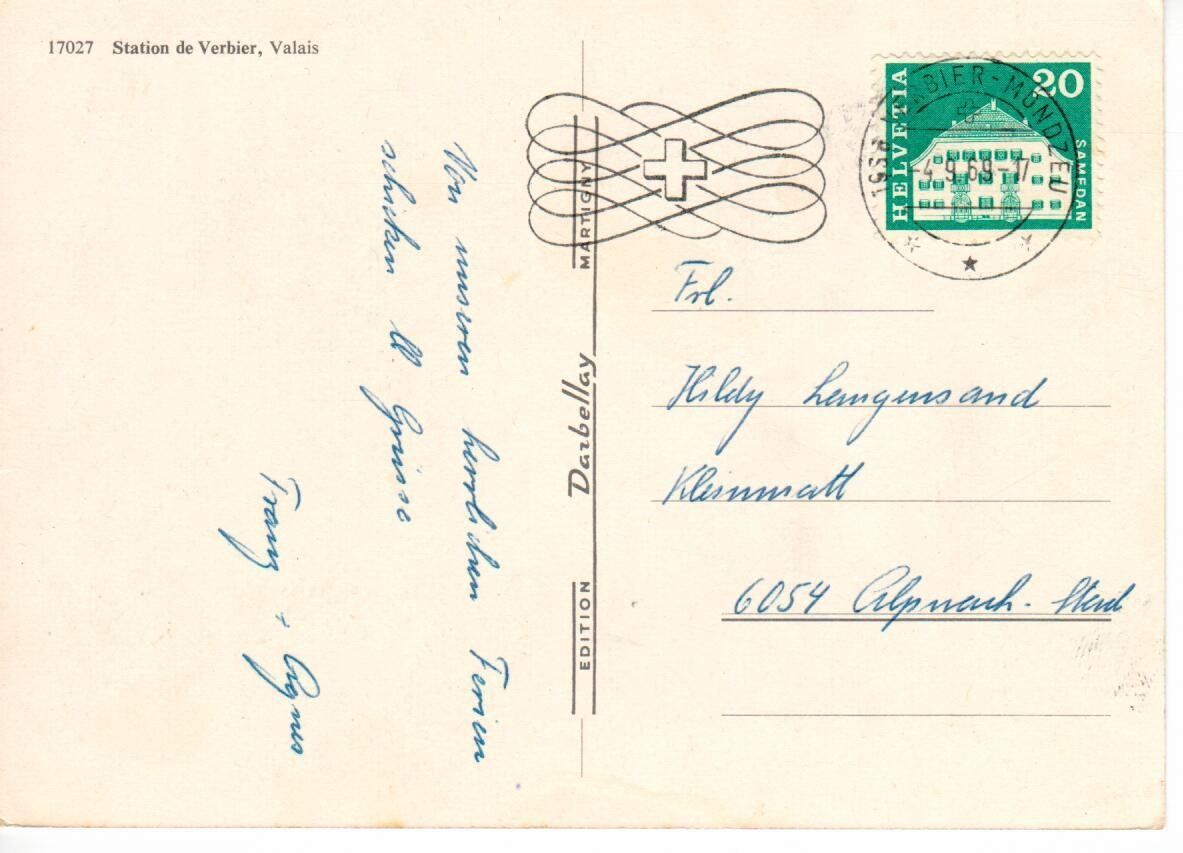 17027 Station de Verbier, Valais
Von unseren herrlichen Ferien
schicken ll. Grüsse
Franz + Agnes
EDITION Darbellay MARTIGNY
HELVETIA
20
SAMEDAN
VERBIER-MONDZEU
-4.9.69-17
Frl.
Hildy Langensand
Kleinmatt
6054 Alpnach-Stad